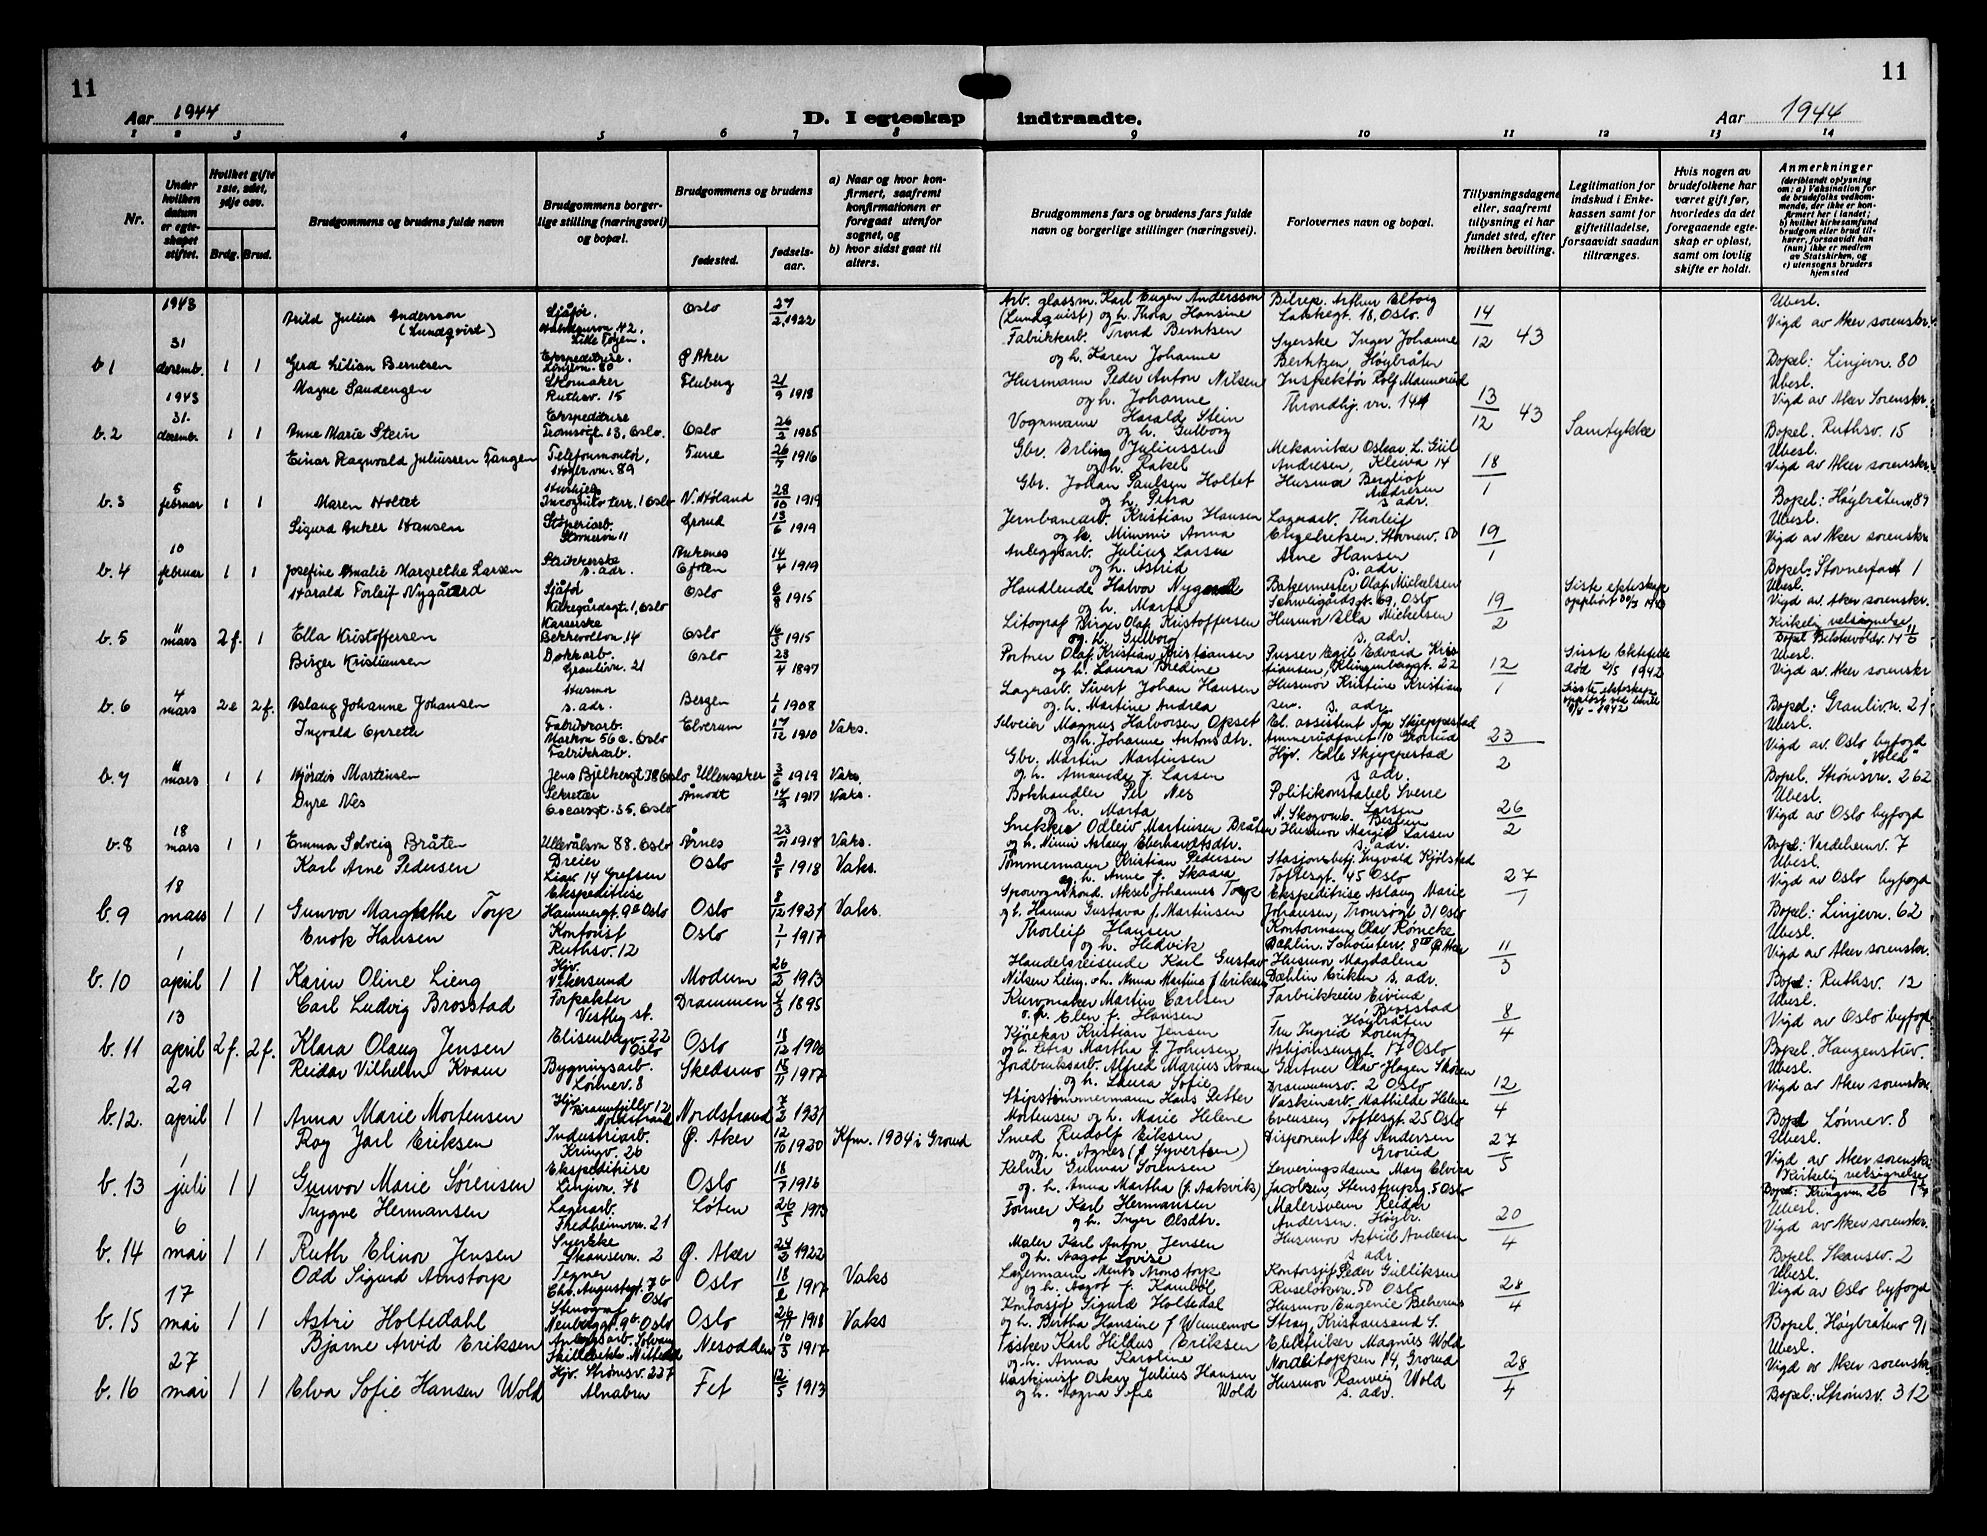 11
Aar 1944
D. I egteskap
indtraadte.
Aar 1944
11
1 2 3 4 5 6 7 8 9 10 11 12 13 14
Nr.
Under hvilken datum er egteskapet stiftet.
Hvilket gifte 1ste, 2det, 3dje osv.
Brdg. Brud.
Brudgommens og brudens fulde navn
Brudgommens borgerlige stilling (næringsvei) og bopæl.
Brudgommens og brudens
fødested.
fødselsaar.
a) Naar og hvor konfirmert, saafremt konfirmationen er foregaat utenfor sognet, og
b) hvor sidst gaat til alters.
Brudgommens fars og brudens fars fulde navn og borgerlige stillinger (næringsvei).
Forlovernes navn og bopæl.
Tillysningsdagene eller, saafremt tillysning ei har fundet sted, efter hvilken bevilling.
Legitimation for indskud i Enkekassen samt for giftetilladelse, forsaavidt saadan tiltrænges.
Hvis nogen av brudefolkene har været gift før, hvorledes da det foregaaende egteskap er opløst, samt om lovlig skifte er holdt.
Anmerkninger (deriblandt oplysning om: a) Vaksination for de brudefolks vedkommende, der ikke er konfirmert her i landet; b) hvilket kirkesamfund brudgom eller brud tilhører, forsaavidt han (hun) ikke er medlem av Statskirken, og c) utensogns bruders hjemsted
b 1 1943 31 desemb. 1 1
Arild Julius Andersson (Lundqvist) Sjåfør. Oslo 27/2 1922
Gerd Lilian Berntsen Ekspeditrise. Linjevn. 80 Ø Aker
Arb. glassm. Karl Eugen Andersson (Lundquist) og h. Thola Hansine
Fabrikkarb. Trond Berntsen og h. Karen Johanne
Syerske Inger Johanne Berntzen Høybråten
14/12 43
Ubesl.
Vigd av Aker sorenskr.
Bopel: Linjevn. 80
b. 2 1943 31. desemb. 1 1
Magne Saudengen Skomaker Ruthsv. 15 Fluberg 21/9 1918
Anne Marie Stein Ekspeditrise Tromsøgt 13, Oslo. Oslo
Husmann Peder Anton Nilsen og h. Johanne
Vognmann Harald Stein og h. Gulborg
Inspektør Rolf Mannerud Throndhj. vn. 141
13/12 43
Samtykke
Ubesl.
Vigd av Aker Sorenskr.
Bopel. Ruthsv. 15
b. 3 5 februar 1 1
Einar Ragnvald Juliussen Tangen Telefonmontør, Høybr.vn. 89 Furre 26/7 1916
Maren Holtet Hushjelp Incognito terr. 1 Oslo N. Høland 28/10 1919
Gbr. Erling Juliussen og h. Rakel
Gbr. Johan Paulsen Holtet og h. Petra
Andresen, Kleiva 14
Husmor Bergliot Andresen s. adr.
18/1
Ubesl.
Vigd av Aker sorenskr.
Bopel: Høybråtenv. 89
b. 4 10 februar 1 1
Sigurd Anker Hansen Støperiarb. Grorud 13/6 1919
Josefine Amalie Margrethe Larsen Strikkerske s. adr. Ankenes Ofoten 14/4 1919
Jernbanearb. Kristian Hansen og h. Mimmi Anna
Anleggsarb. Julius Larsen og h. Astrid
Lagerarb. Thorleif Engebretsen. Stovnerv. 50
Arne Hansen s. adr.
19/1
Ubesl.
Vigd av Aker sorenskr.
b. 5 11 mars 2 f. 1
Harald Torleif Nygård Sjåfør Kirkegårdsgt. 1, Oslo Oslo 6/8 1915
Ella Kristoffersen Kasserske Bekkevollvn. 14 Oslo 16/3 1915
Handlende Halvor Nygård og h. Marta
Litograf Birger Olaf Kristoffersen og h. Gulborg
Bakermester Olaf Mickelsen Schweigårdsgt. 69, Oslo
Husmor Ella Mickelsen s. adr.
19/2
Ubesl.
Vigd av Aker sorenskr.
Kirkelig velsignelse
b. 6 4 mars 2e 2 f.
Birger Kristiansen Dokkarb. Granlivn. 21 Oslo 23/4 1897
Aslaug Johanne Johansen Husmor s. adr. Bergen 1/1 1908
Portner Olaf Kristian Kristiansen og h. Laura Bredine
Lagerarb. Sivert Johan Hansen og h. Martine Andrea
Pusser Egil Edvard Kristiansen, Klingenberggt. 22
Husmor Kristine Kristiansen. s. adr.
12/1
Siste Ektefelle død 2/5 1942
Ubesl.
Vigd av Aker sorenskr
Bopel: Granlivn. 21
b. 7 11 mars 1 1
Ingvald Opseth Fabrikkarb. Markvn 56 c. Oslo Elverum 17/12 1910 Vaks.
Hjørdis Martinsen Fabrikkarb. Jens Bjelkesgt. 78 Oslo Ullensaker 3/6 1919 Vaks.
Selveier Magnus Halvorsen Opset og h. Johanne Antonsdtr.
Gbr. Martin Martinsen og h. Amanda f. Larsen
El. assistent Age Skjeppestad Ammerudfaret 10 Grorud
Hjv. Edle Skjeppestad s. adr.
23/2
Ubesl.
Vigd av. Oslo byfogd
Bopel. Strømsv. 262
b. 8 18 mars 1 1
Dyre Nes Sekretær Oscarsgt. 35, Oslo Åmodt 1917 Vaks.
Emma Solveig Bråten Ullevålsvn 88. Oslo Årnes 1918 Vaks.
Bokhandler Per Nes og h. Marta
Snekker Odleiv Martinsen Bråten og h. Ninni Aslaug Eberhardtsdtr.
Politikonstabel Sverre Larsen
Husmor Margit Larsen s. adr.
26/2
Ubesl.
Vigd av Oslo byfogd
Bopl: Vardeheimv. 7
b. 9 18 mars 1 1
Karl Arne Pedersen Dreier Liav. 14 Grefsen Oslo 3/5 1918 Vaks.
Gunvor Margrethe Torp Ekspeditrise Hammergt. 9 Oslo Oslo 8/12 1921 Vaks.
Tømmermann Kristian Pedersen og h. Anne f. Skaara
Sporvognskond. Aksel Johannes Torp og h. Hanna Gustava f. Martinsen
Stasjonsbetj. Ingvald Kjølstad Toftesgt. 45 Oslo
Ekspeditrise Aslaug Marie Johansen, Tromsøgt 31 Oslo
27/1
Ubesl.
Vigd av Oslo byfogd
Bopel: Linjevn. 62
b. 10 1 april 1 1
Enok Hansen Kontorist Ruthsv. 12 Oslo 1917
Karin Oline Lieng Hjv. Vikersund Modum 26/2 1913
Thorleif Hansen og h. Hedvik
Handelsreisende Karl Gustav Nilsen Lieng. o. h. Anna Martine f. Eriksen
Husmor Magdalena Dæhlin Eriksen s. adr.
11/3
Ubesl.
Vigd av Aker sorenskr.
Bopel: Ruthsv. 12
b. 11 13 april 2 f. 2 f.
Carl Ludvig Brosstad Forpakter Vestby st. Drammen 4/3 1895
Klara Olaug Jensen Elisenbergv. 22 Oslo Oslo 18/12 1900
Kurvmaker Martin Carlsen o. h. Elen f. Hansen
Kjørekar Kristian Jensen og h. Petra Martha f. Johnsen
Farbrikkeier Eivind Brosstad Høybråten
Fru Ingrid Lorentz Asbjørnsensgt. 17 Oslo
8/4
Ubesl.
Vigd av Oslo byfogd
Bopel. Haugenstuv.
b. 12. 29 april 1 1
Reidar Vilhelm Kvam Bygningsarb. Lønnev. 8 Skedsmo 1917
Anna Marie Mortensen Hjv. Nordstrand 7/2 1921
Jordbruksarb. Alfred Marius Kvam og h. Laura Sofie
Skipstømmermann Hans Petter Mortensen og h. Marie Helene
Gartner Olav Hagen Skøien Drammensv. 2 Oslo
Vaskinarb. Mathilde Helene Evensen, Toftesgt. 25 Oslo
12/4
Ubesl.
Vigd av Aker sorenskr.
Bopel Lønnev. 8
b. 13 1 juli 1 1
Roy Jarl Eriksen Industriarb. Kringv. 26 Ø. Aker 12/10 1920 Kfm. 1934 i Grorud
Gunvor Marie Sørensen Ekspeditrise Linjevn. 78 Oslo 1916
Smed Rudolf Eriksen og h. Agnes (f. Syvertsen)
Kelner Gunnar Sørensen og h. Anna Martha (f. Aakvik)
Disponent Alf Andersen Grorud
Serveringsdame Mary Elvira Jacobsen, Stenstrupsg. 5 Oslo
27/5
Ubesl.
Vigd av Aker sorenskr.
Kirkelig velsignelse
Bopel: Kringvn. 26
b. 14 6 mai 1 1
Trygve Hermansen Lagerarb. Fredheimvn. 21 Løten 26/5 1913
Ruth Elinor Jensen Syerske Skansevn. 2 Ø. Aker 1922
Former Karl Hermansen og h. Inger Olsdtr.
Maler Karl Anton Jensen og h. Aagot Lovise
Malersvenn Reidar Andersen. Høybr.
Husmor Astrid Andersen s. adr.
20/4
Ubesl.
Vigd av Aker sorenskr.
Bopel Skansev. 2
b. 15 17 mai 1 1
Odd Sigurd Arnstorp Tegner Chr. Augustsgt. 7b Oslo Oslo 18/2 1917 Vaks
Astri Holtedahl Stenograf Neuberggt. 9b Oslo Oslo 1918 Vaks
Lagermann Ments Arnstorp og h. Aagot f. Kambøl
Kontorsjef Sigurd Holtedal og h. Bertha Hansine f Wennemoe
Kontorsjef Peder Gulliksen Ruseløkvn. 50 Oslo
Husmor Eugenie Behrens Stray, Kristiansand S.
28/4
Ubesl.
Vigd av Oslo byfogd
Bopel. Høybråtenv 91
b. 16 27 mai 1 1
Bjarne Arvid Eriksen Anleggsarb. Nesodden 10/3 1917
Elva Sofie Hansen Wold Hjv. Strømsv. 227 Alnabru Fet 12/5 1913
Fisker Karl Hildus Eriksen og h. Anna Karoline
Maskinist Oskar Julius Hansen Wold og h. Magna Sofie
Elektriker Magnus Wold Nordlitoppen 14, Grorud
Husmor Ranveig Wold s. adr.
28/4
Ubesl.
Vigd av Aker sorenskr.
Bopel: Strømsv. 312